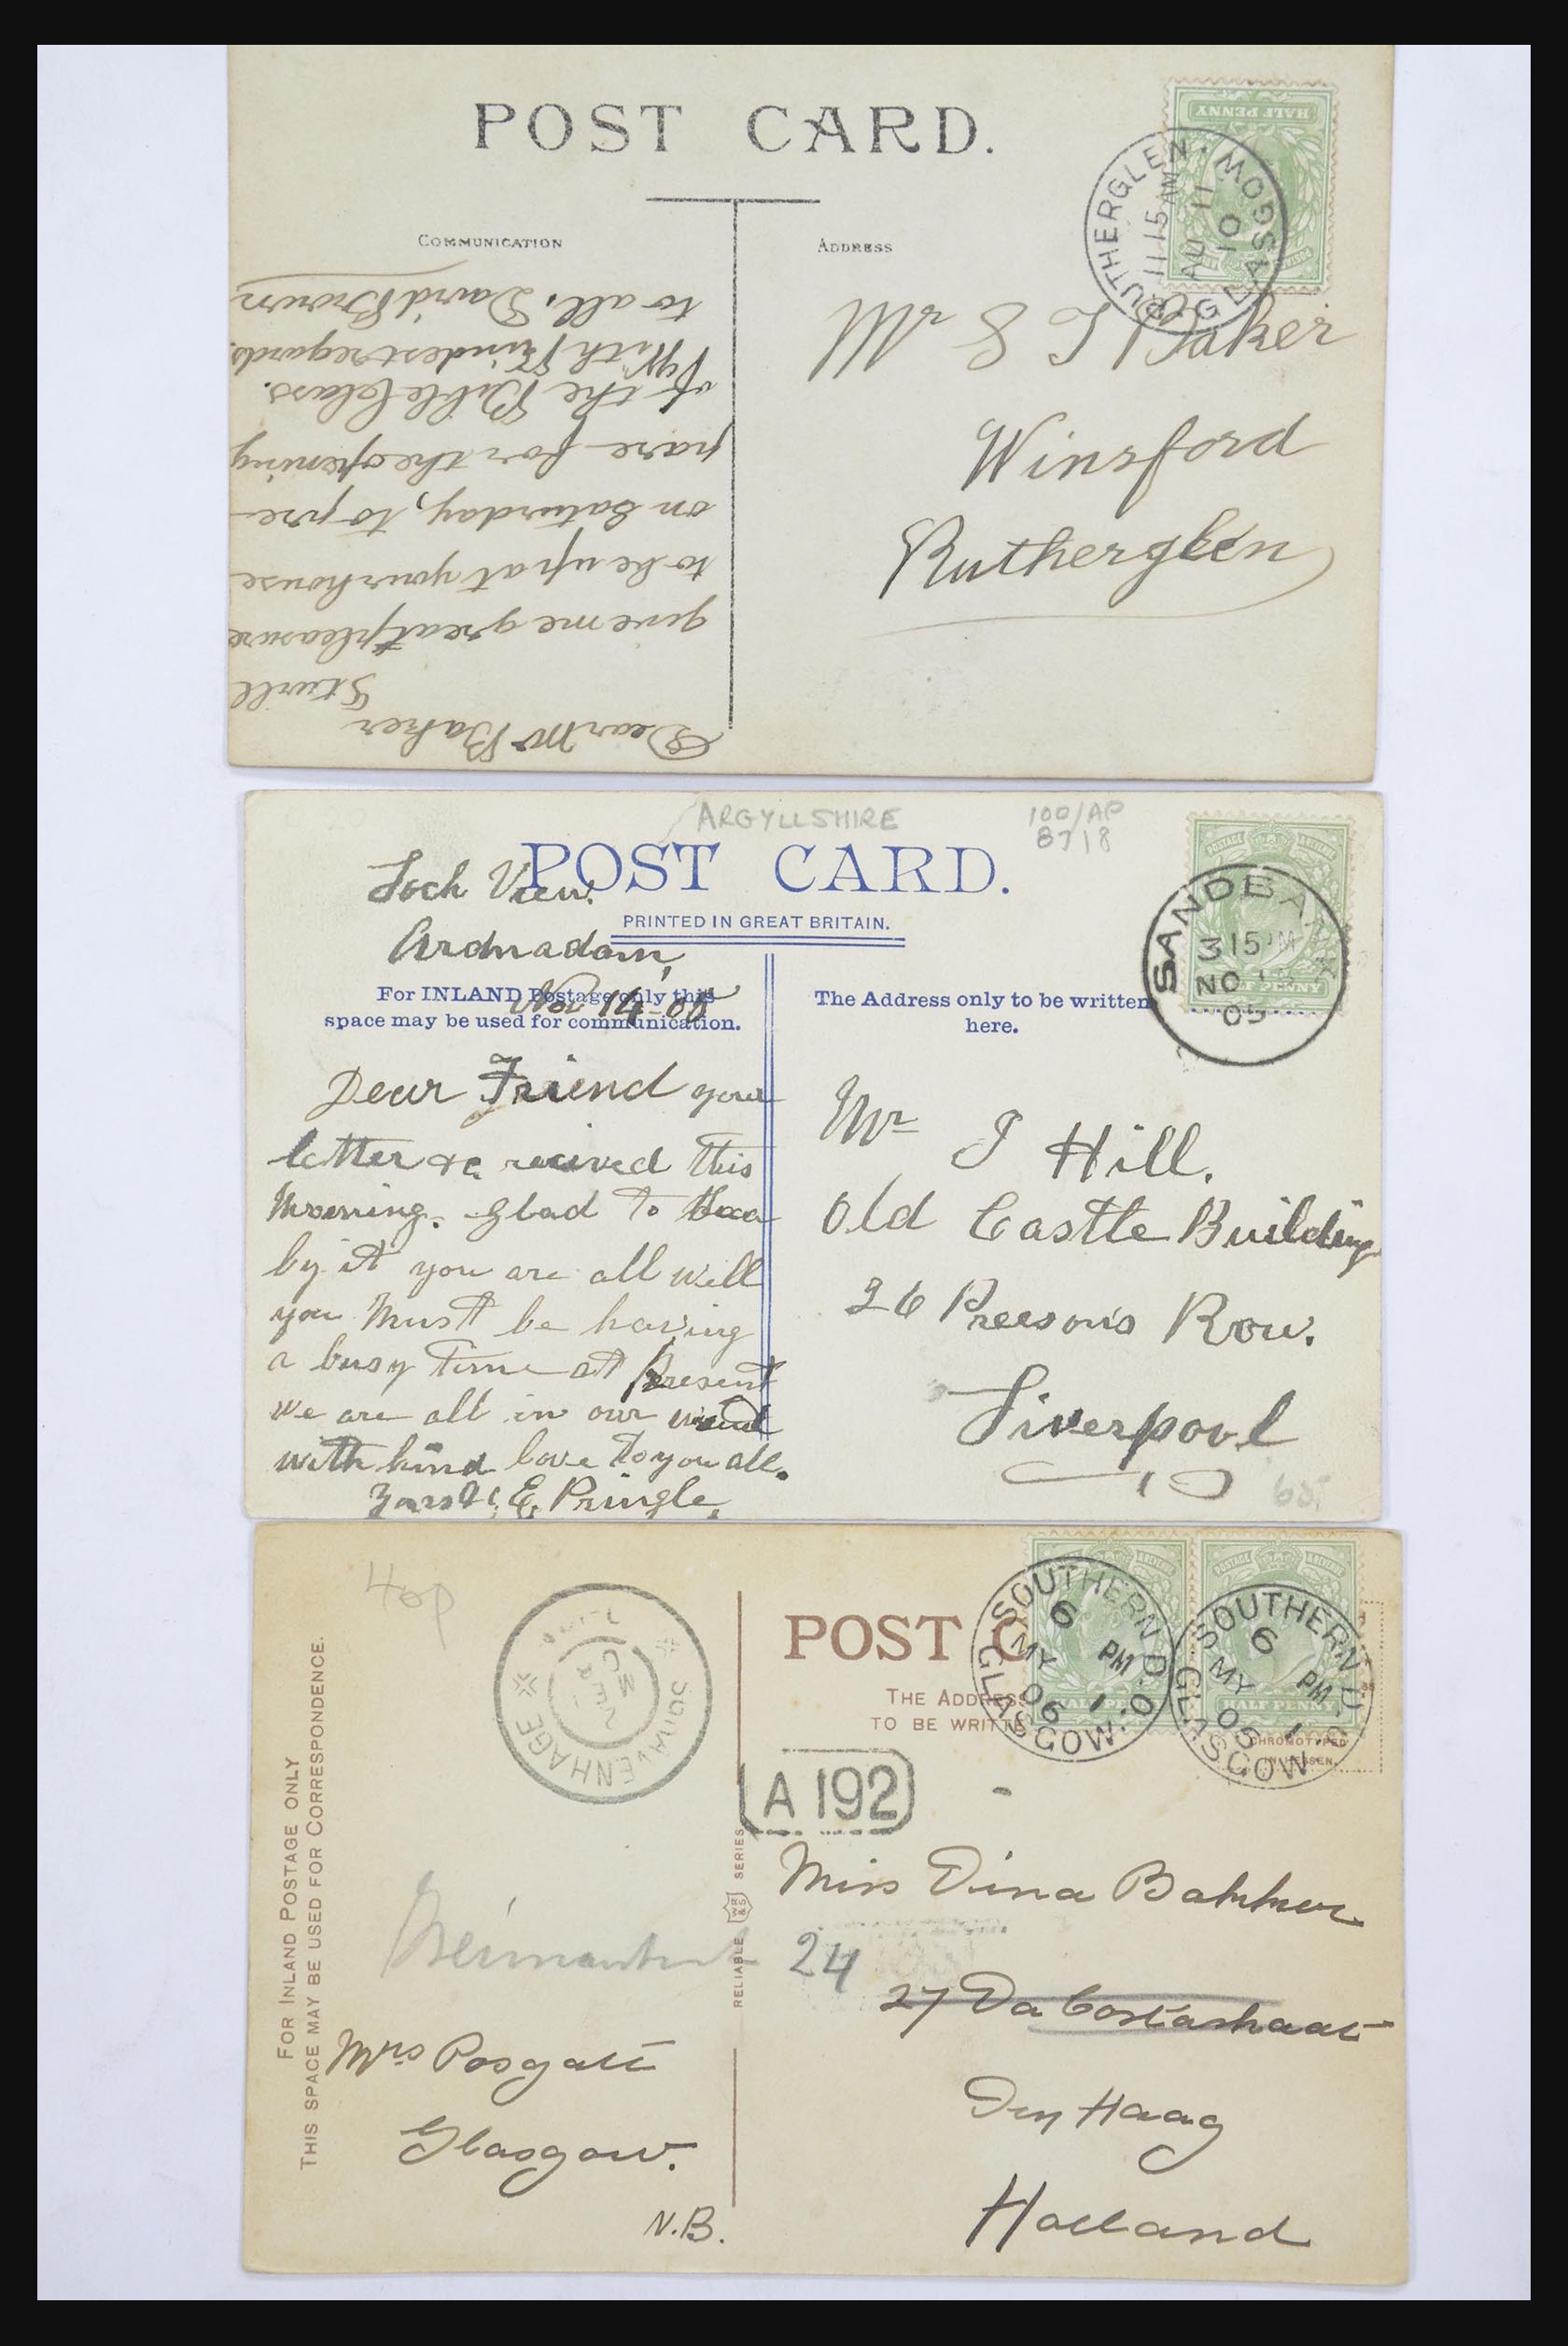 POST CARD.
COMMUNICATION
ADDRESS
HALF PENNY
RUTHERGLEN. GLASGOW
11 15 AM
AU 11
10
Mr S T Baker
Winsford
Rutherglen
Dear Mr Baker
It will
give me great pleasure
to be up at your house
on Saturday, to pre-
pare for the opening
of the Bible Class.
With Kindest regards.
to all. David Brown
ARGYLLSHIRE
100/AP
8718
POST CARD.
PRINTED IN GREAT BRITAIN.
For INLAND Postage only this
space may be used for communication.
The Address only to be written
here.
POSTAGE
HALF PENNY
SANDBANK
3 15 PM
NO 1
05
Loch View.
Ardnadam,
Nov 14-05
Dear Friend your
letter &c. recived this
Morning. Glad to
by it you are all well
you Must be having
a busy Time at Present
we are all in our
with kind love to you all.
E. Pringle.
Mr J Hill.
Old Castle Building
26 Preesons Row.
Liverpool
POST C
THE ADDRESS
TO BE WRITTE
FOR INLAND POSTAGE ONLY
THIS SPACE MAY BE USED FOR CORRESPONDENCE.
POSTAGE
HALF PENNY
HALF PENNY
SOUTHERN D.O
6 PM
MY 1
06
GLASGOW.
SOUTHERN D.O
6 PM
MY 1
06
GLASGOW.
CHROMOTYPED
IN HESSEN.
'S GRAVENHAGE
A 192
RELIABLE WR&S SERIES
Miss Dina Bakker
24
27 Da Costastraat
Den Haag
Holland
Posgate
Glasgow.
N.B.